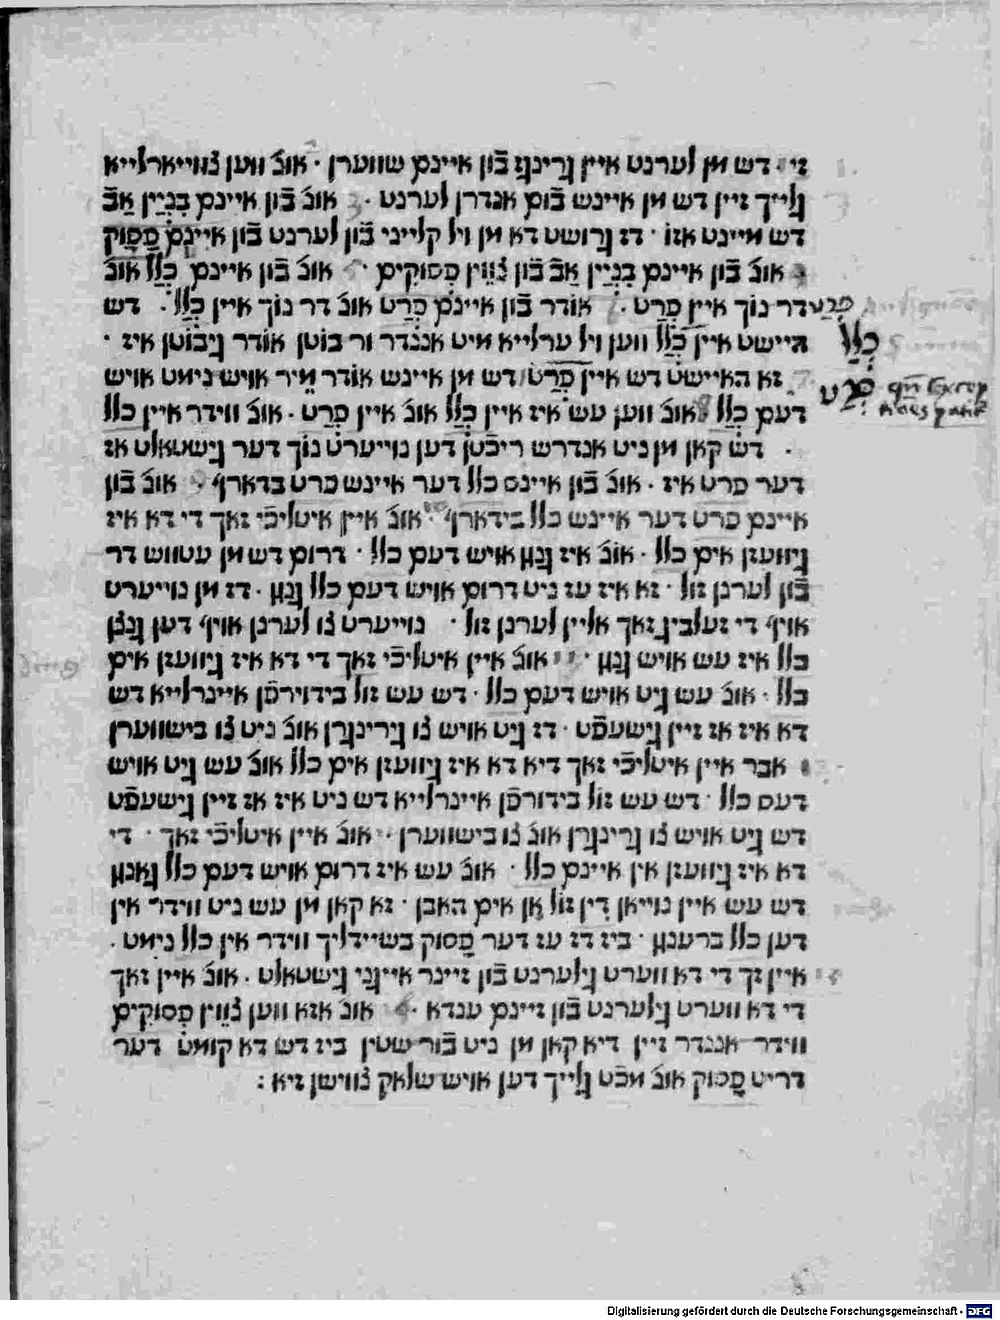 זי · דש מן לערנט איין גרינג בֿון איינם שווערן · אונ ווען צווייארלייא
גלייך זיין דש מן איינש בֿום אנדרן לערנט · אונ בֿון איינם בִנְיַין אַב
דש מיינט אזו · דז גרושט דא מן ויל קלייני בֿון לערנט בֿון איינם פָסוּק
אונ בֿון איינם בִנְיַין אַב בֿון צְוֵויין פְסוּקים · אונ בֿון איינם כְלַל אונ
דר נוך איין פְרַט · אודר בֿון איינם פְרַט אונ דר נוך איין כְלַל · דש
היישט איין כְלַל ווען ויל ערלייא מיט אננדר ור בוטן אודר גיבוטן איז ·
זא האיישט דש איין פְרַט דש מן איינש אודר מֵיר אויש נימט אויש
דעם כְלַל · אונ ווען עש איז איין כְלַל אונ איין פְרַט · אונ ווידר איין כלל
· דש קאן מן ניט אנדרש ריכֿטן דען נוייערט נוך דער גישטאלט אז
דער פרט איז · אונ בֿון איינם כלל דער איינש פרט בדארף · אונ בֿון
איינם פרט דער איינש כלל בידארף · אונ איין איטליכֿי זאך די דא איז
גיוועזן אים כלל · אונ איז גנג אויש דעם כלל · דרום דש מן עטווש דר
בֿון לערנן זול · זא איז עז ניט דרום אויש דעם כלל גנג · דז מן נוייערט
אויף די זעלביג זאך אליין לערנן זול · נוייערט צו לערנן אויף דען גנצן
כלל איז עש אויש גנג · אונ איין איטליכֿי זאך די דא איז גיוועזן אים
כלל · אונ עש גיט אויש דעם כלל · דש עש זול בידוירפֿן איינרלייא דש
דא איז אז זיין גישעפֿט · דז גיט אויש צו גרינגרן אונ ניט צו בישווערן
אבר איין איטליכֿי זאך דיא דא איז גיוועזן אים כלל אונ עש גיט אויש
דעם כלל · דש עש זול בידורפֿן איינרלייא דש ניט איז אז זיין גישעפֿט
דש גיט אויש צו גרינגרן אונ צו בישווערן · אונ איין איטליכֿי זאך · די
דא איז גיוועזן אין איינם כלל · אונ עש איז דרום אויש דעם כלל גאנג
דש עש איין נוייאן דִין זול אן אים האבן · זא קאן מן עש ניט ווידר אין
דען כלל ברענג · ביז דז עז דער פָסוק בשיידליך ווידר אין כלל נימט ·
איין זך די דא ווערט גילערנט בֿון זיינר אייגני גישטאלט · אונ איין זאך
די דא ווערט גילערנט בֿון זיינם ענדא · אונ אזא ווען צְוֵויין פְסוקים
ווידר אננדר זיין דיא קאן מן ניט בֿור שטין ביז דש דא קומט דער
דריט פָסוק אונ מכֿט גלייך דען אויש שלאק צווישן זיא :
כְלַל
פרט